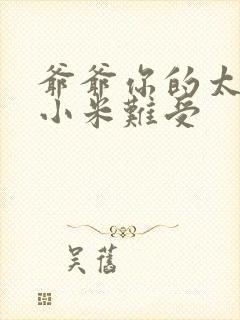 爺爺你的太
小米難受
吴舊